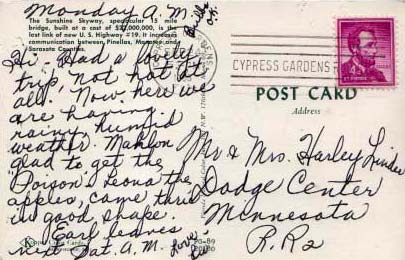 Monday A.M.
The Sunshine Skyway, spectacular 15 mile
bridge, built at a cost of $22,000,000, is the
last link of new U. S. Highway #19. It increases
communication between Pinellas, Manatee and
Sarasota Counties.
Hi. Had a lovely
trip, not hot at
all. Now here we
are having
rainy, humid
weather. Mahlon
glad to get the
"Poison". Leona the
apples, came thru
in good shape.
Earl leaves
next Sat. A.M.
Love
CYPRESS GARDENS
4¢
POST CARD
Address
Mr & Mrs. Harley Linder
Dodge Center
Minnesota
R.R2